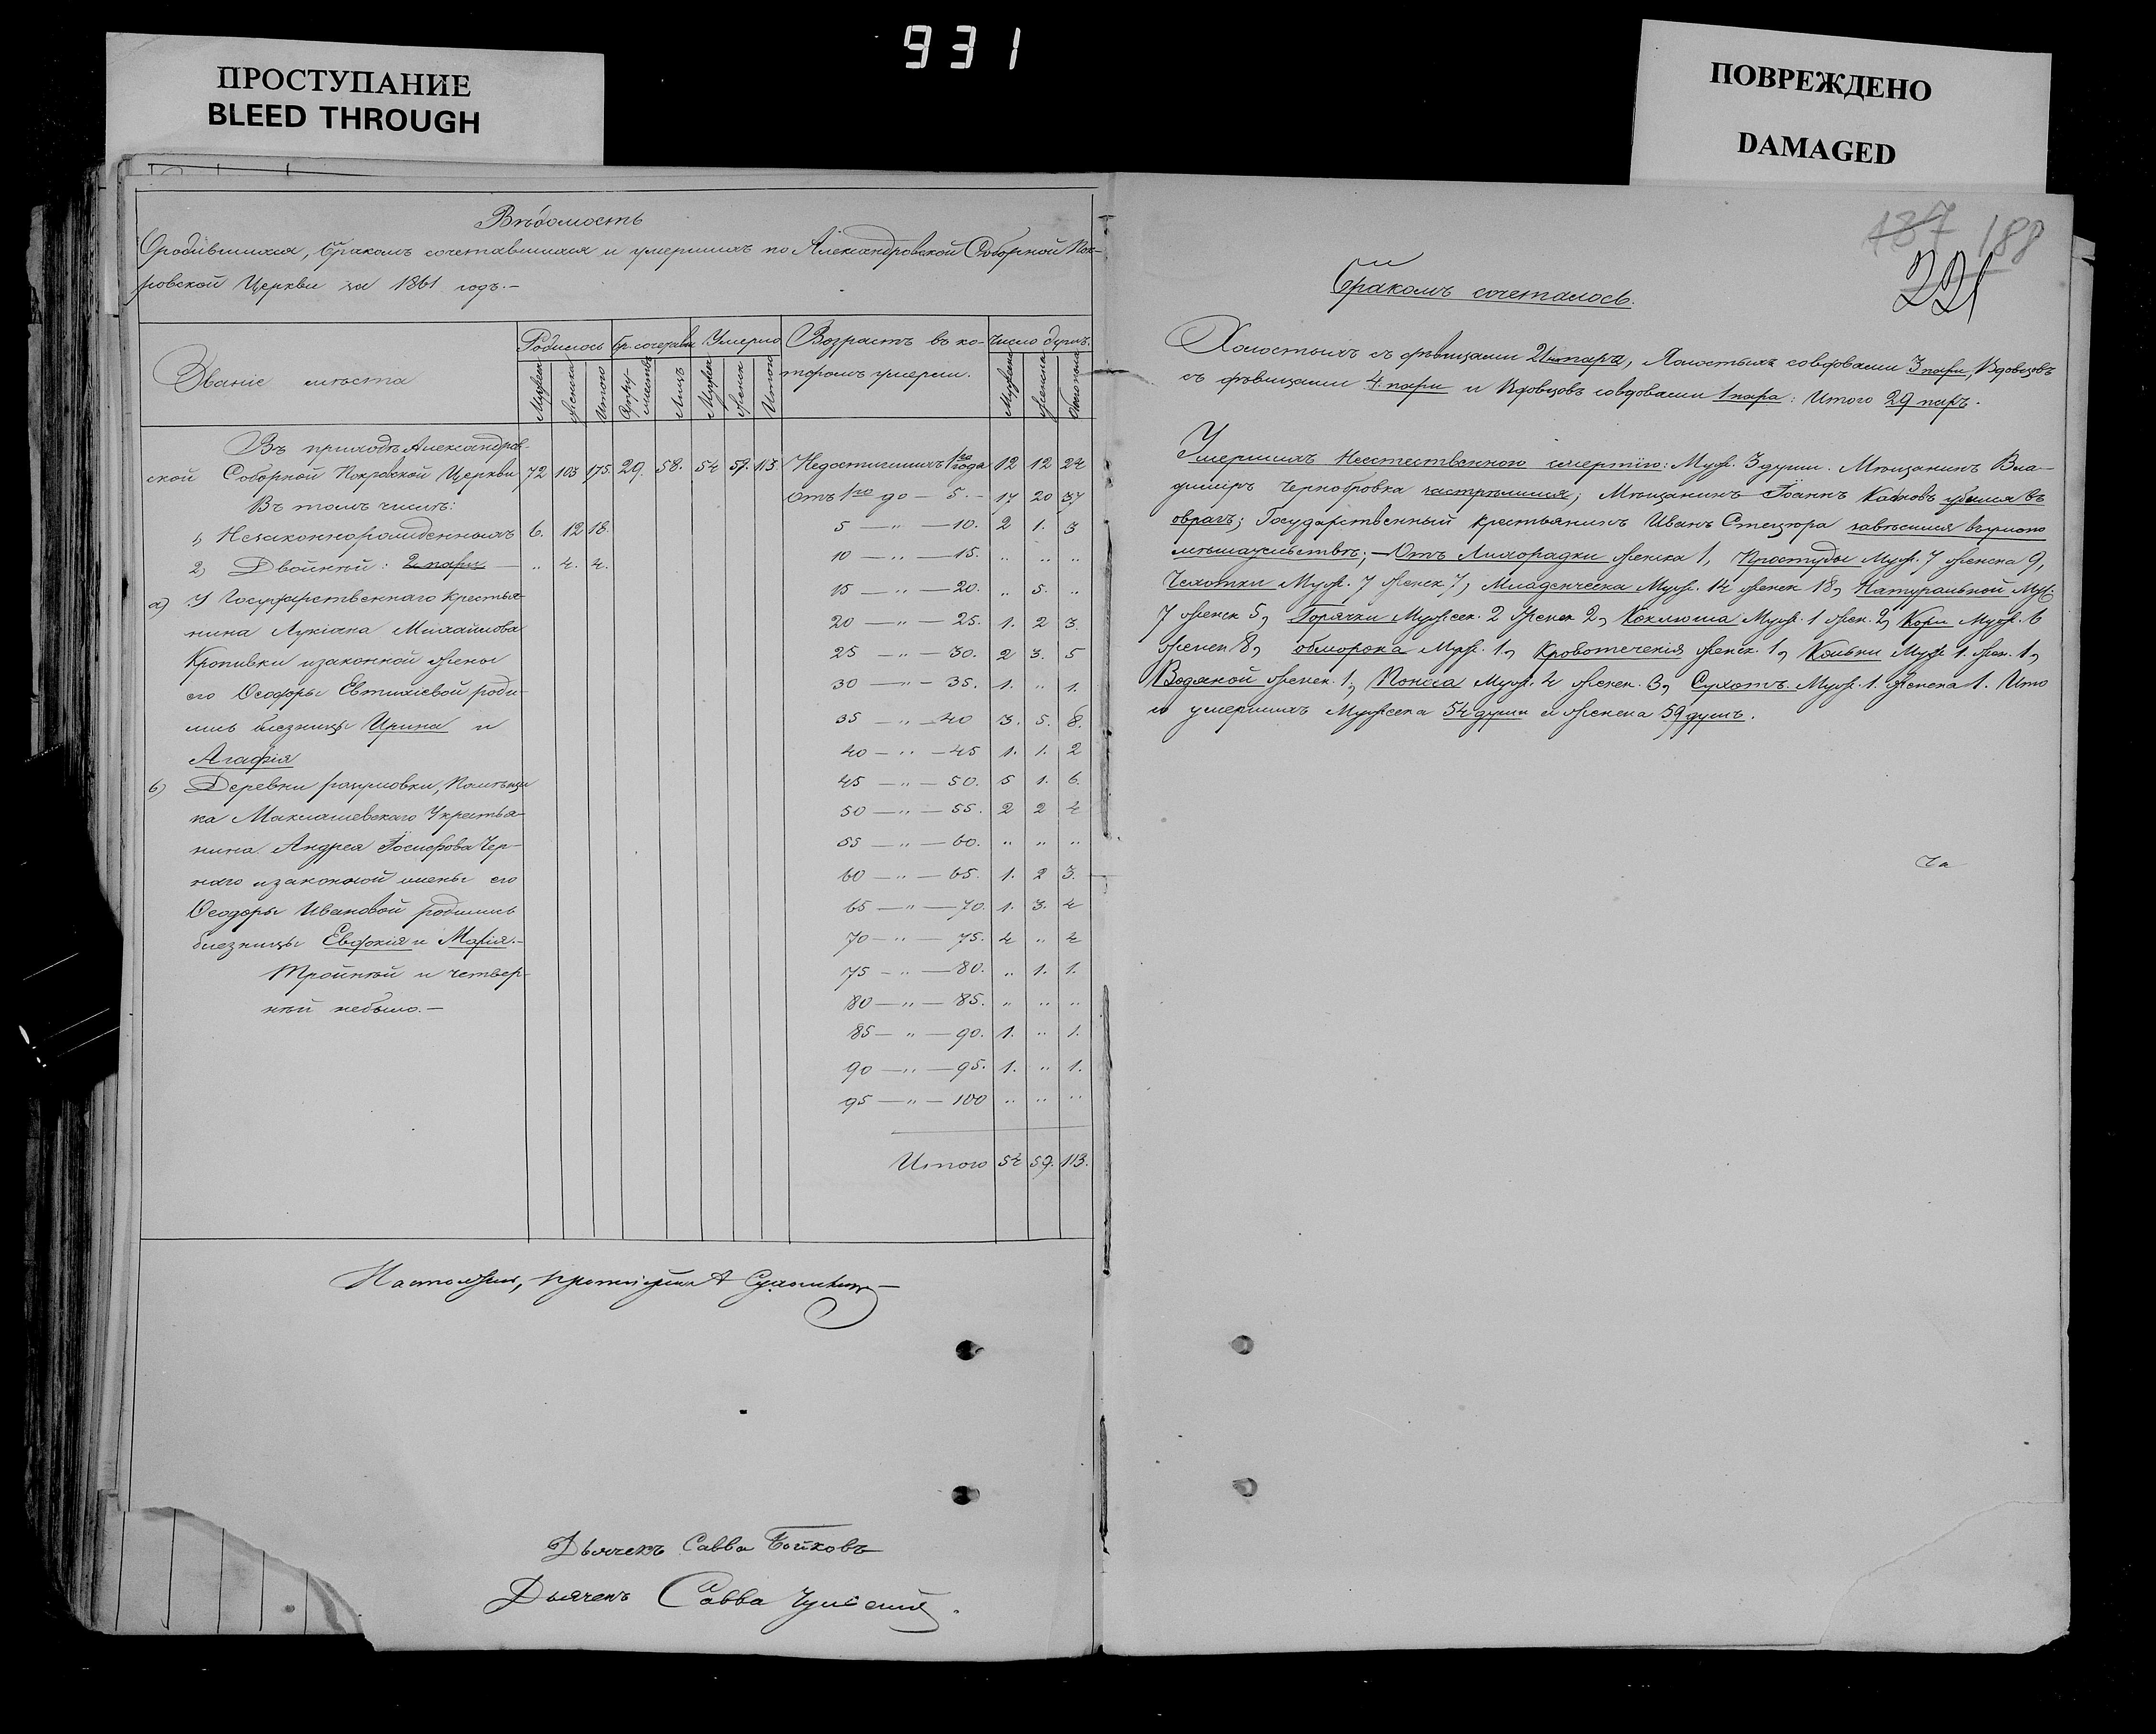 931
ПРОСТУПАНИЕ
BLEED THROUGH
ПОВРЕЖДЕНО
DAMAGED
Вѣдомость
О родившихся, бракомъ сочетавшихся и умершихъ по Александровской Соборной Пок-
ровской Церкви за 1861 годъ.-
Званіе мѣста
Родилось
Мужеск
Женска
Итого
Бр. сочеталı
Супру-
жествъ
Лицъ
Умерло
Мужск
Женск
Итого
Возрастъ въ ко-
торомъ умерли.
Число душъ.
Мужеска
Женска
Въ приходѣ Александров-
ской Соборной Покровской Церкви 72 103 175. 29. 58. 54 59. 113.
Въ томъ числѣ:
1, Незаконнорожденныхъ 6. 12 18.
2, Двойней: 2 пары — „ 4. 4.
а) У Государственнаго крестья-
нина Лукіана Михайлова
Кропивки изаконной жены
его Ѳеодоры Евтихіевой роди-
лись близнецы Ирина и
Агафія
б) Деревни Разумовки, Помѣщи
ка Маклашевскаго Укрестья-
нина Андрея Іосифова Чер-
наго изаконной жены его
Ѳеодоры Ивановой родились
близнецы Евдокія и Марія.-
Тройней и четвер-
ней небыло.—
Недостигшихъ 1го года 12 12 24
Отъ 1го до — 5. — 17 20 37
5 — „ — 10. 2 1. 3
10 — „ — 15. „ „ „
15 — „ — 20. „ 5. „
20 — „ — 25. 1. 2 3.
25 — „ — 30. 2 3. 5
30 — „ — 35. 1. „ 1.
35 — „ — 40 3. 5. 8.
40 — „ — 45 1. 1. 2
45 — „ — 50. 5 1. 6.
50 — „ — 55. 2 2 4
55 — „ — 60. „ „ „
60 — „ — 65. 1. 2 3.
65 — „ — 70. 1. 3. 4
70 — „ — 75. 4 „ 4
75 — „ — 80. „ 1. 1.
80 — „ — 85. „ „ „
85 — „ — 90. 1. „ 1.
90 — „ — 95. 1. „ 1.
95 — „ — 100 „ „ „
Итого 54 59. 113.
Настоятель, протоіерей А
Дьячекъ Савва Бойковъ
Дьячекъ Савва
187 188
221
Бракомъ сочеталось.
Холостыхъ съ дѣвицами 21 пара, Холостыхъ совдовами 3 пары, Вдовцовъ
съ дѣвицами 4. пары и Вдовцовъ совдовами 1 пара: Итого 29 паръ.
Умершихъ Неестественною смертію: Муж. 3 души. Мѣщанинъ Вла-
диміръ Чернобровка застрѣлился; Мѣщанинъ Іоаннъ Катковъ убился въ
оврагѣ; Государственный крестьянинъ Иванъ Стецюра завѣсился въумопо
мѣшательствѣ; — Отъ Лихорадки женска 1, Простуды Муж. 7 женска 9,
Чехотки Муж. 7 женск 7, Младенческа Муж. 14 женск 18, Натуральной Муж.
7 женск 5, Горячки Мужеск. 2 Женск 2, Коклюша Муж. 1 жен. 2, Кори Муж. 6
женск 8, обморока Муж. 1., Кровотеченія женск. 1, Кольки Муж 1. жен. 1,
Водяной женск. 1., Поноса Муж. 4 женск. 6, Сухотъ. Муж. 1. Женска 1. Ито
го умершихъ Мужеска 54 души и женска 59 душъ.